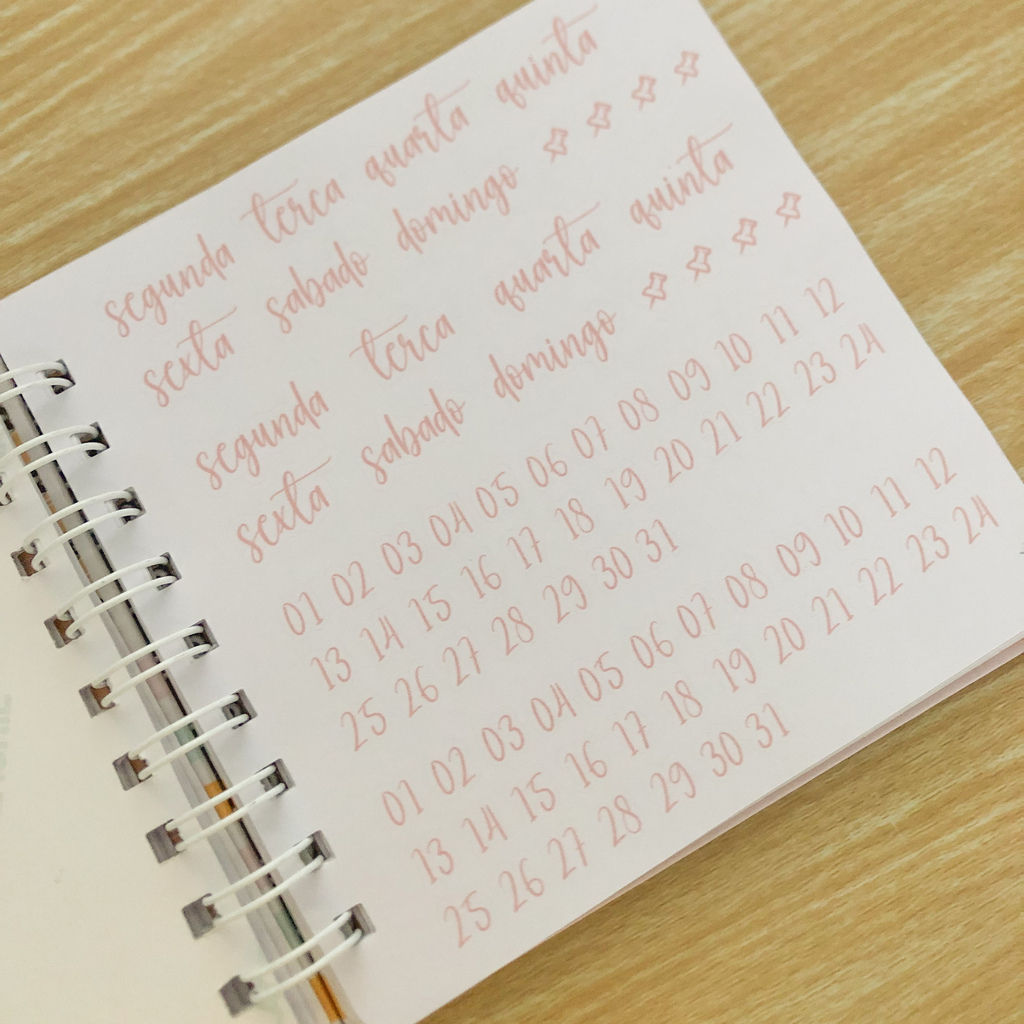 segunda terca quarta quinta
sexta sabado domingo
segunda terca quarta quinta
sexta sabado domingo
01 02 03 04 05 06 07 08 09 10 11 12
13 14 15 16 17 18 19 20 21 22 23 24
25 26 27 28 29 30 31
01 02 03 04 05 06 07 08 09 10 11 12
13 14 15 16 17 18 19 20 21 22 23 24
25 26 27 28 29 30 31